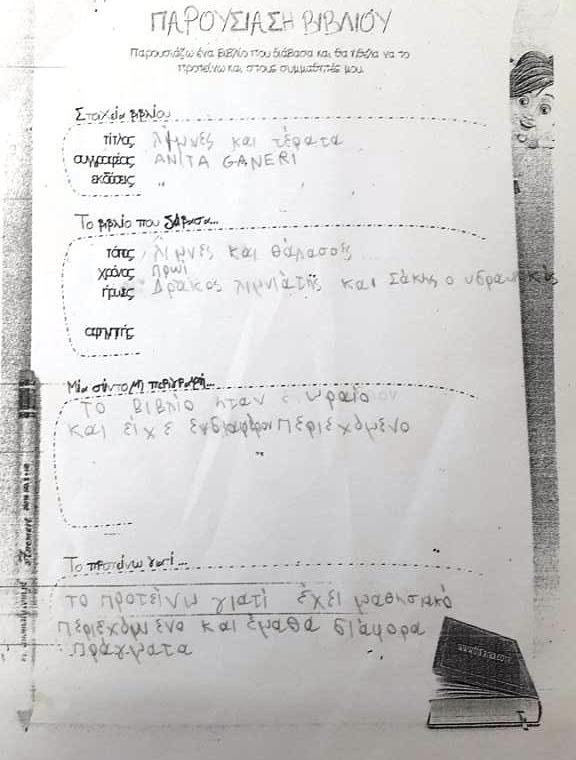 ΠΑΡΟΥΣΙΑΣΗ ΒΙΒΛΙΟΥ
Παρουσιάζω ένα βιβλίο που διάβασα και θα ήθελα να το
προτείνω και στους συμμαθητές μου.
Στοιχεία βιβλίου
τίτλος λίμνες και τέρατα
συγγραφέας ANITA GANERI
εκδόσεις "
Το βιβλίο που διάβασα...
τόπος λιμνες και θάλασσες
χρόνος πρωί
ήρωες Δράκος λιμνιάτης και Σάκης ο υδραυλικός
αφηγητής
Μία σύντομη περιγραφή...
Το βιβλίο ηταν ωραίο
και είχε ενδιαφέρον περιεχόμενο
Το προτείνω γιατί ...
το προτείνω γιατί έχει μαθησιακό
περιεχόμενο και έμαθα διάφορα
πράγματα